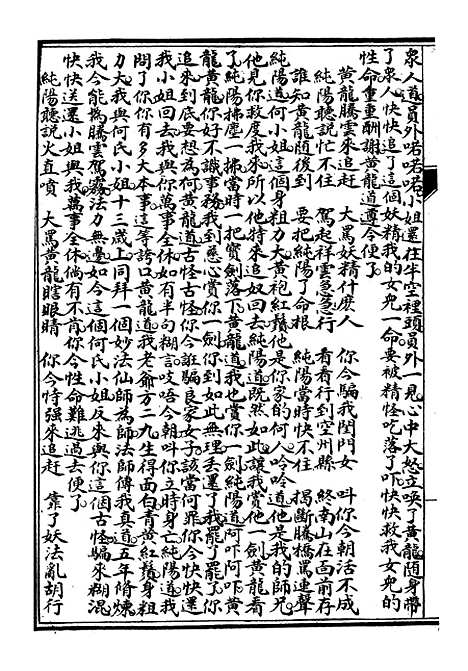 衆人道員外喏喏喏小姐還在半空裡頭員外一見心中大怒立喚了黄龍随身帶
了衆人快快追了這個妖精我的女兒一命要被精怪吃落了吓快快救我女兒的
性命重重酬謝黄龍道遵令便了
黄龍騰雲來追赶　大罵妖精什庅人　你今騙我閨門女　叫你今朝活不成
純陽聽說忙不住　駕起祥雲急急行　看看行到空州縣　終南山在面前存
誰知黄龍随後到　要把純陽了命根　純陽當時快不住　揭斷騰橋罵連聲
純陽道何小姐這個身粗力大黄袍紅鬚他是你家的何人吟吟道他是我的師兄
他見你救度我來所以他特來追奴回去純陽道既然如此讓我賞他一劍黄龍看
了純陽拂塵一拂當時一把寶劍落下黄龍道我也賞你一劍純陽道阿吓阿吓黄
龍黄龍你好不識事務我到慈心賞你一劍你到如此無理丢還了我罷了罷了你
追來到底要想為何黄龍道古怪古怪你今誑騙良家女子該當何罪你今快快還
我小姐回去我與你萬事全休如有半句糊言吱唔今朝叫你立時身亡純陽道我
問了你你有多大本事這等誇口黄龍道我老爺方二九生得面白青黄紅鬚身粗
力大我與何氏小姐十三歲上同拜一個妙法仙師為師法師傳我真道五年脩煉
我今能為騰雲駕霧法力無邊如今這個何氏小姐反來與你這個古怪騙來糊混
快快送還小姐與我萬事全休倘有不肯你今性命難逃過去便了
純陽聽說火直噴　大罵黄龍瞎眼睛　你今恃强來追赶　靠了妖法亂胡行